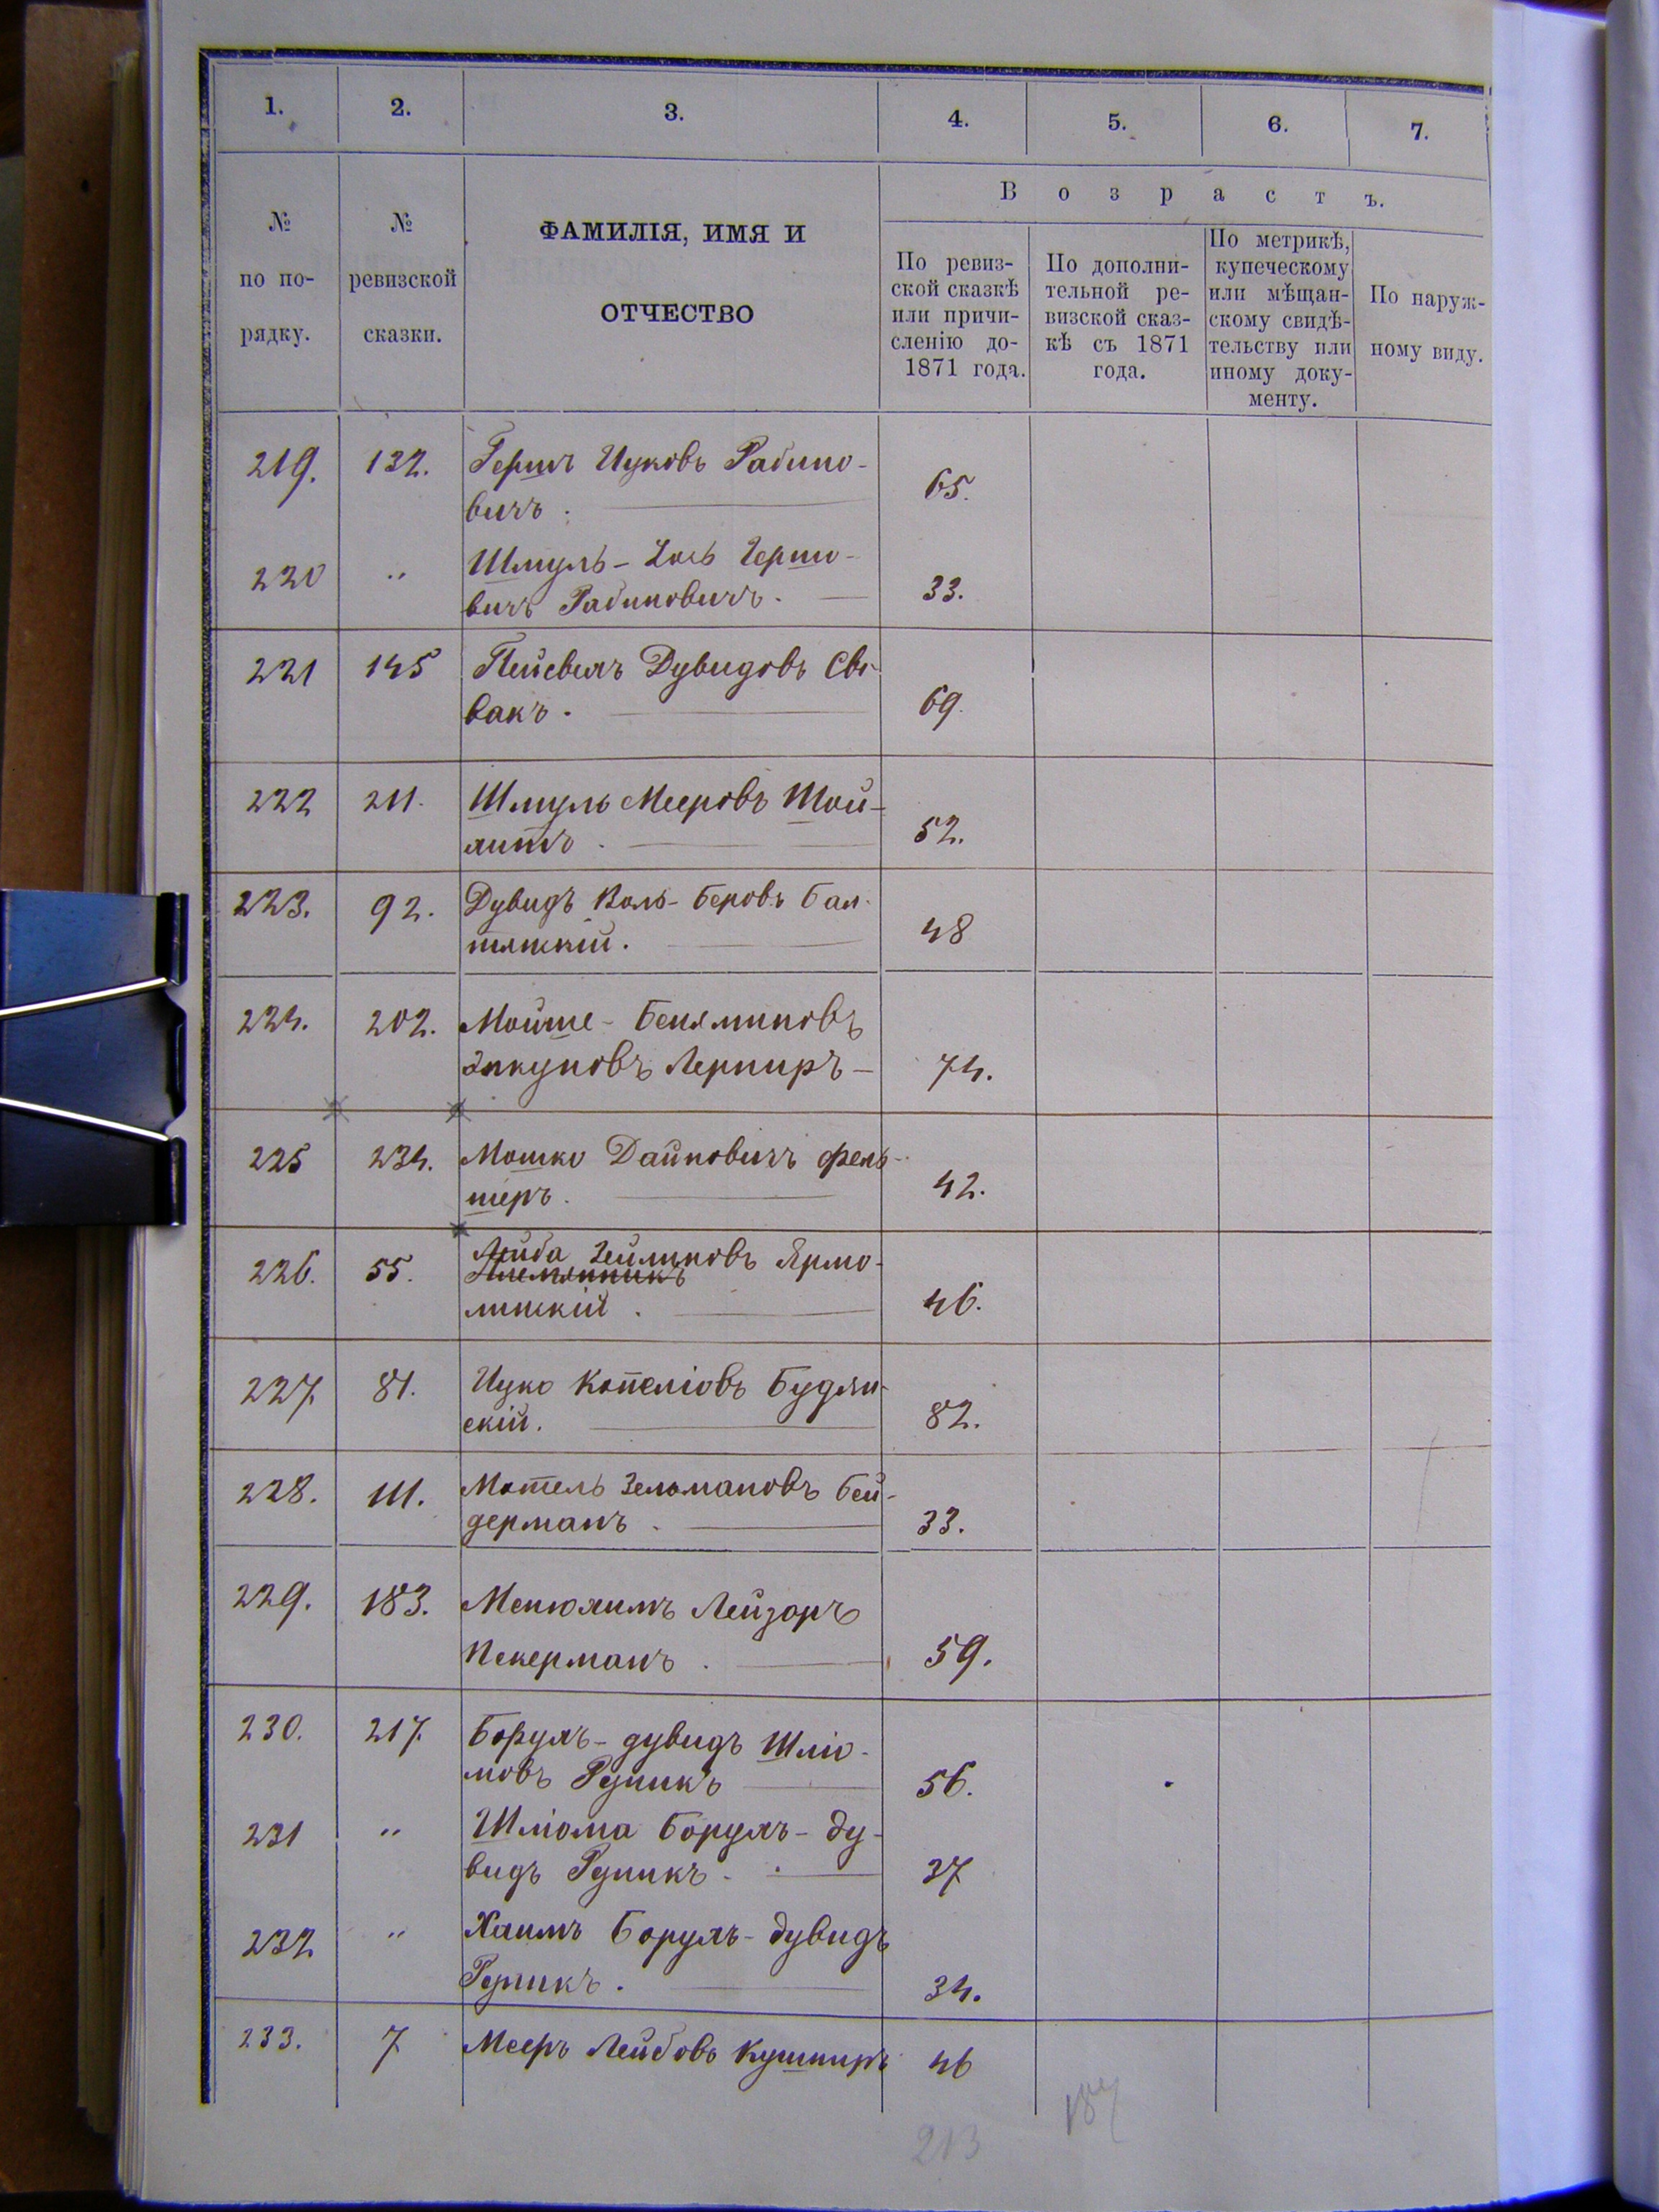 1. 2. 3. 4. 5. 6. 7.
№ по по-рядку.
№ ревизской сказки.
ФАМИЛІЯ, ИМЯ И
ОТЧЕСТВО
Возрастъ.
По ревиз-
ской сказкѣ
или причи-
сленію до-
1871 года.
По дополни-
тельной ре-
визской сказ-
кѣ съ 1871
года.
По метрикѣ,
купеческому
или мѣщан-
скому свидѣ-
тельству или
иному доку-
менту.
По наруж-
ному виду.
219. 132. Гершъ Ицковъ Рабино-
вичъ. 65.
220 " Шмуль- Іось Гершо-
вичъ Рабиновичъ. 33.
221 145 Пейсвелъ Дувидовъ Спи-
вакъ. 69.
222 211. Шмуль Мееровъ Шой-
литъ. 52.
223. 92. Дувидъ Воль-Беровъ Бал-
тянскій. 48
224. 202. Мойше-Беняминовъ
Янкуновъ Лерниръ 74.
225 234. Мошко Дайновичъ Фель-
шеръ. 42.
226. 55. Лейба Зейликовъ Ярмо-
Племянникъ
линскій. 46.
227. 81. Ицко Копеліовъ Будян-
скій. 82.
228. 111. Мотель Зельмановъ Бей-
дерманъ. 33.
229. 183. Менюлимъ Лейзоръ
Пекерманъ. 59.
230. 217. Борухъ-дувидъ Шліо-
мовъ Рудникъ 56.
231 " Шліома Борухъ-Ду-
видъ Рудникъ. 37
232 " Хаимъ Борухъ-Дувидъ
Рудникъ. 34.
233. 7 Мееръ Лейбовъ Кушниръ 46
213 187